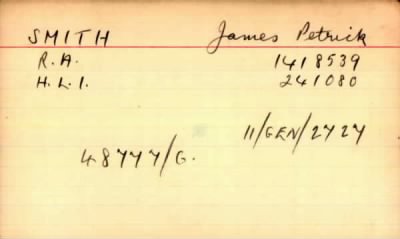 SMITH James Petrick
R.A. 1418539
H.L.I. 241080
11/GEN/2727
48777/G.